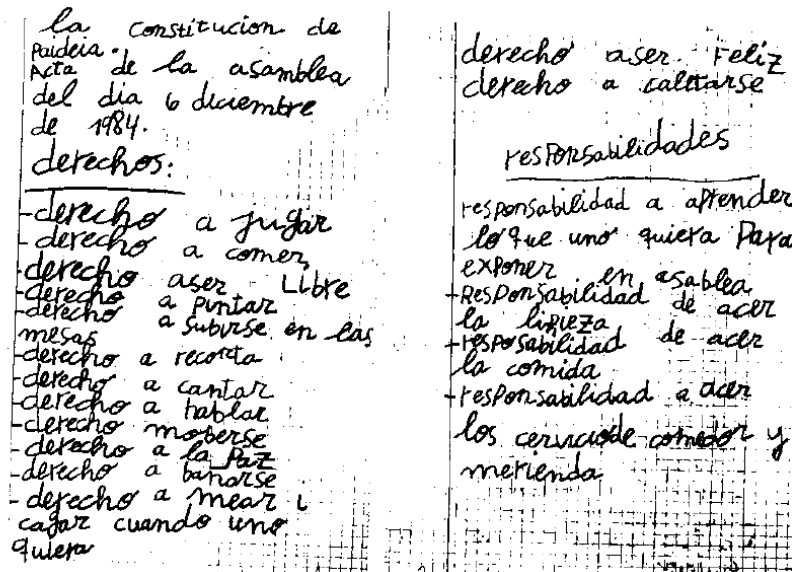 la constitucion de
Paideia.
Acta de la asamblea
del dia 6 diciembre
de 1984.
derechos:
-derecho a jugar
-derecho a comer,
derecho aser Libre
-derecho a pintar
-derecho a subirse en las
mesas
-derecho a recorta
-derecho a cantar
-derecho a hablar
-derecho moberse
-derecho a la Paz
-derecho a bañarse
-derecho a mear i
cagar cuando uno
quiera
derecho aser Feliz
derecho a
responsabilidades
responsabilidad a aprender
lo que uno quiera Para
exponer en asablea
-Responsabilidad de acer
la lipieza
-resposabilidad de acer
la comida
-responsabilidad a acer
los cerviciode comedor y
merienda